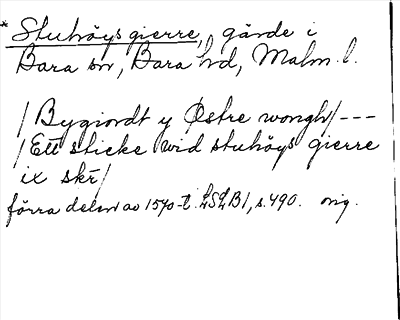 * Stuhöys gierre, gärde i
Bara sn, Bara hd, Malm. l.
/Bygiordt y Østre wongh/---
/Ett sticke wid stuhöys gierre
ix skr/
förra delen av 1540-t. LSLB1, s. 490. orig.